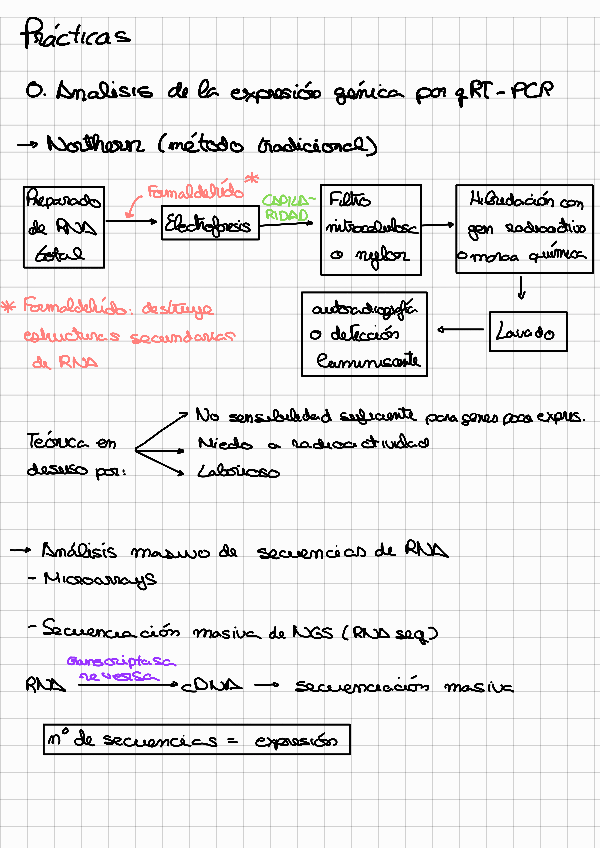 Prácticas
0. Analisis de la expresión génica por qRT-PCR
→ Northern (método tradicional)
Preparado
de RNA
total
Formaldehído *
Electroforesis
CAPILA-
RIDAD
Filtro
nitrocelulosa
o nylon
Hibridación con
gen radioactivo
o marca química
Lavado
autoradiografía
o detección
luminiscente
* Formaldehído: destruye
estructuras secundarias
de RNA
Teórica en
desuso por:
No sensibilidad suficiente para genes poco expres.
Miedo a radioactividad
Laborioso
→ Análisis masivo de secuencias de RNA
- Microarrays
- Secuenciación masiva de NGS (RNA seq)
transcriptasa
reversa
RNA → cDNA → secuenciación masiva
nº de secuencias = expresión